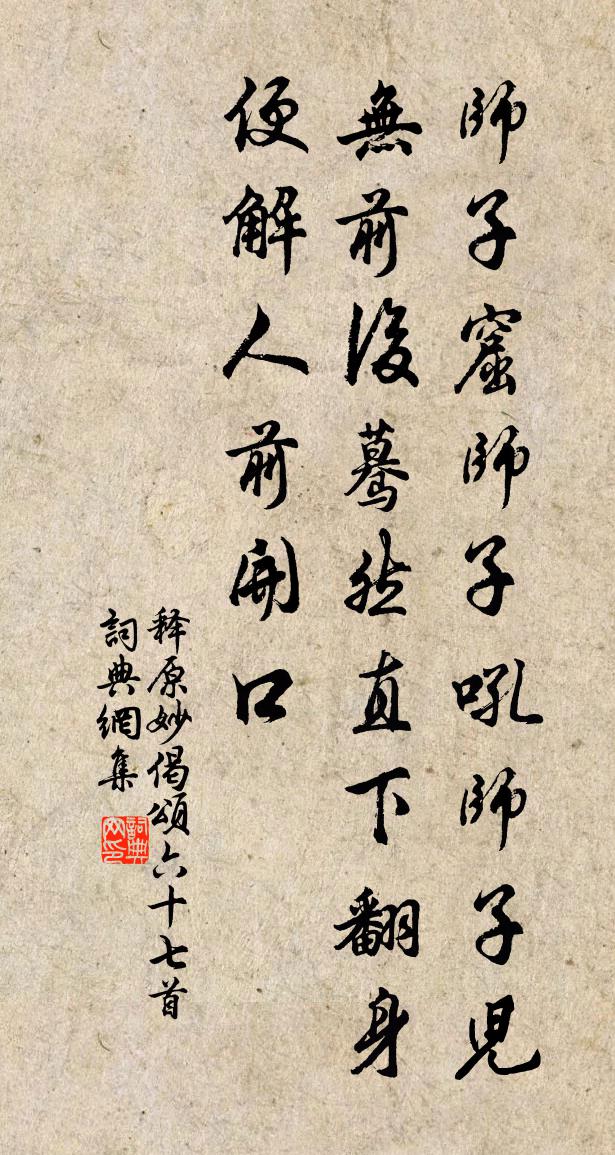 師子窟師子吼師子児
無前後驀然直下翻身
便解人前開口
释原妙偈頌六十七首
詞典網集
詞典
网印